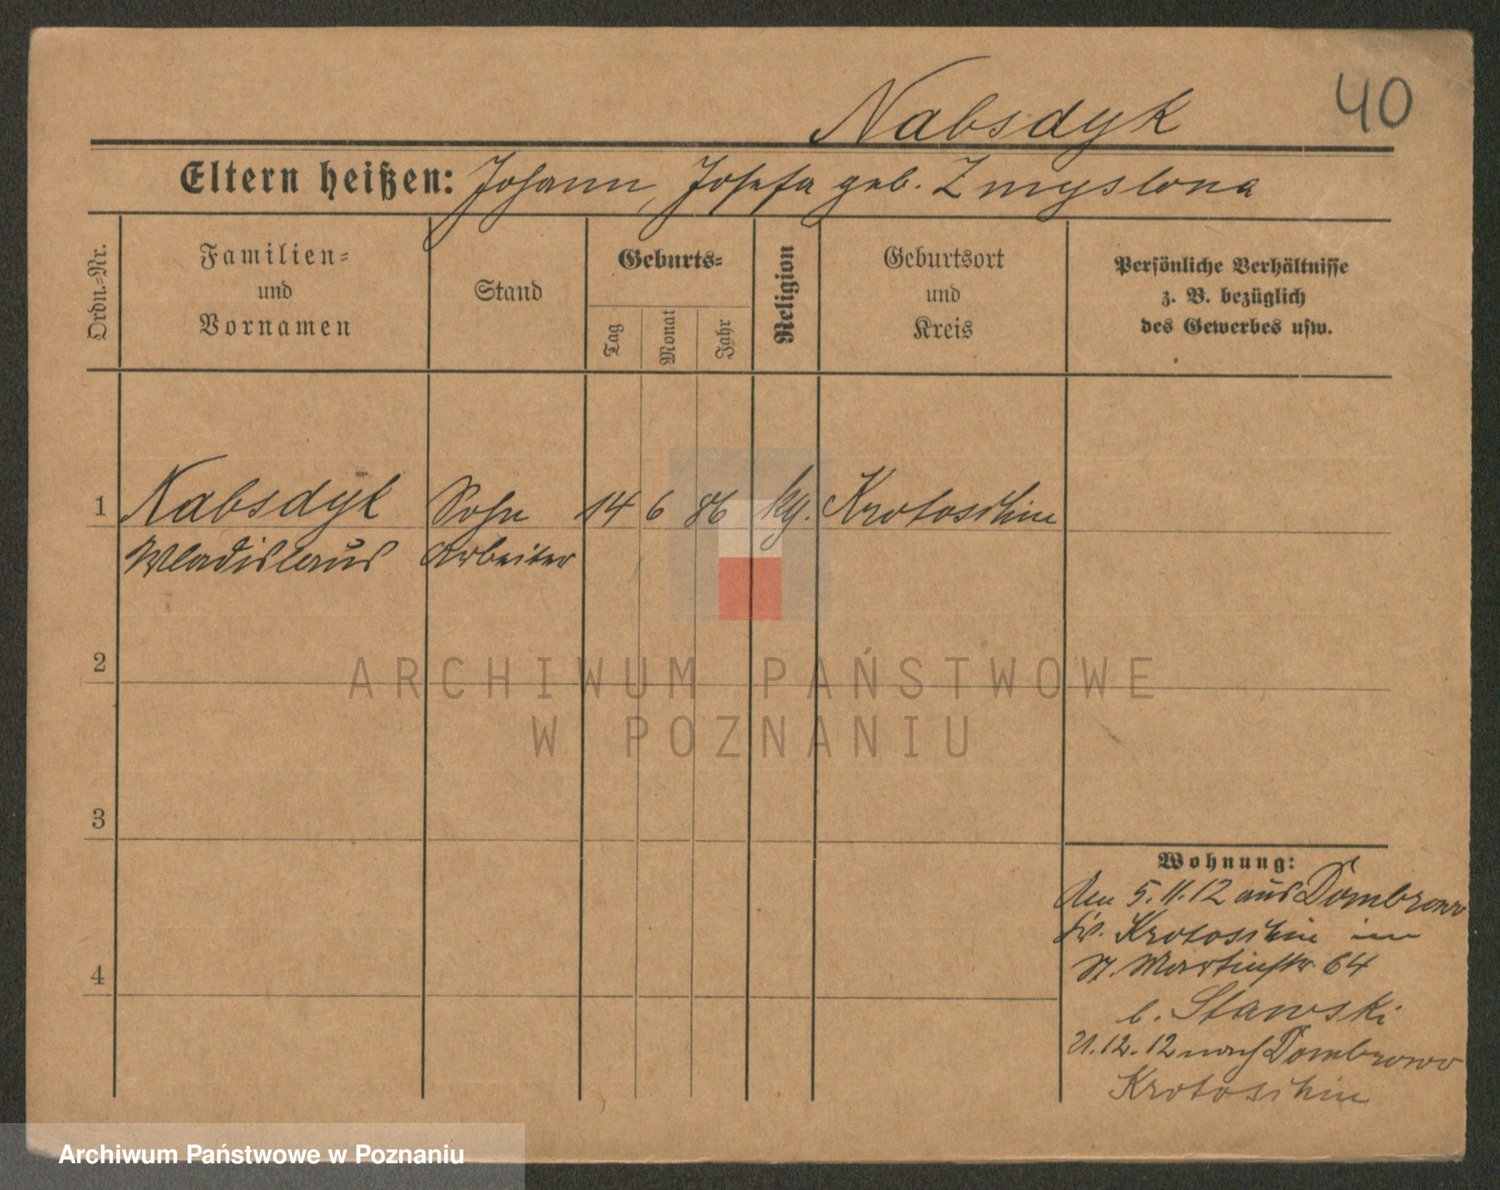 40
Nabsdyk
Eltern heißen: Johann, Josefa geb. Zmyslona
Ordn.-Nr.
Familien-
und
Vornamen
Stand
Geburts-
Tag
Monat
Jahr
Religion
Geburtsort
und
Kreis
Persönliche Verhältnisse
z. B. bezüglich
des Gewerbes usw.
1 Nabsdyk Sohn 14 6 86 kg. Krotoschin
Wladislaus Arbeiter
2
3
4
Wohnung:
Den 5.11.12 aus Dombrowo
Kr. Krotoschin in
St. Martinstr. 64
b. Stawski
21.12.12 nach Dombrowo
Krotoschin
ARCHIWUM PAŃSTWOWE
W POZNANIU
Archiwum Państwowe w Poznaniu